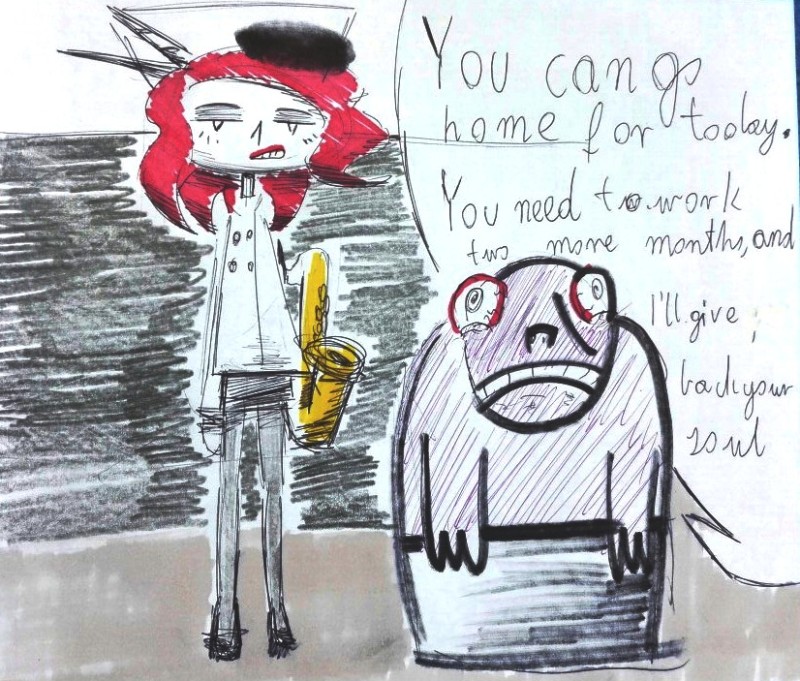 You can go
home for today.
You need to work
two more months, and
I'll give
back your
soul